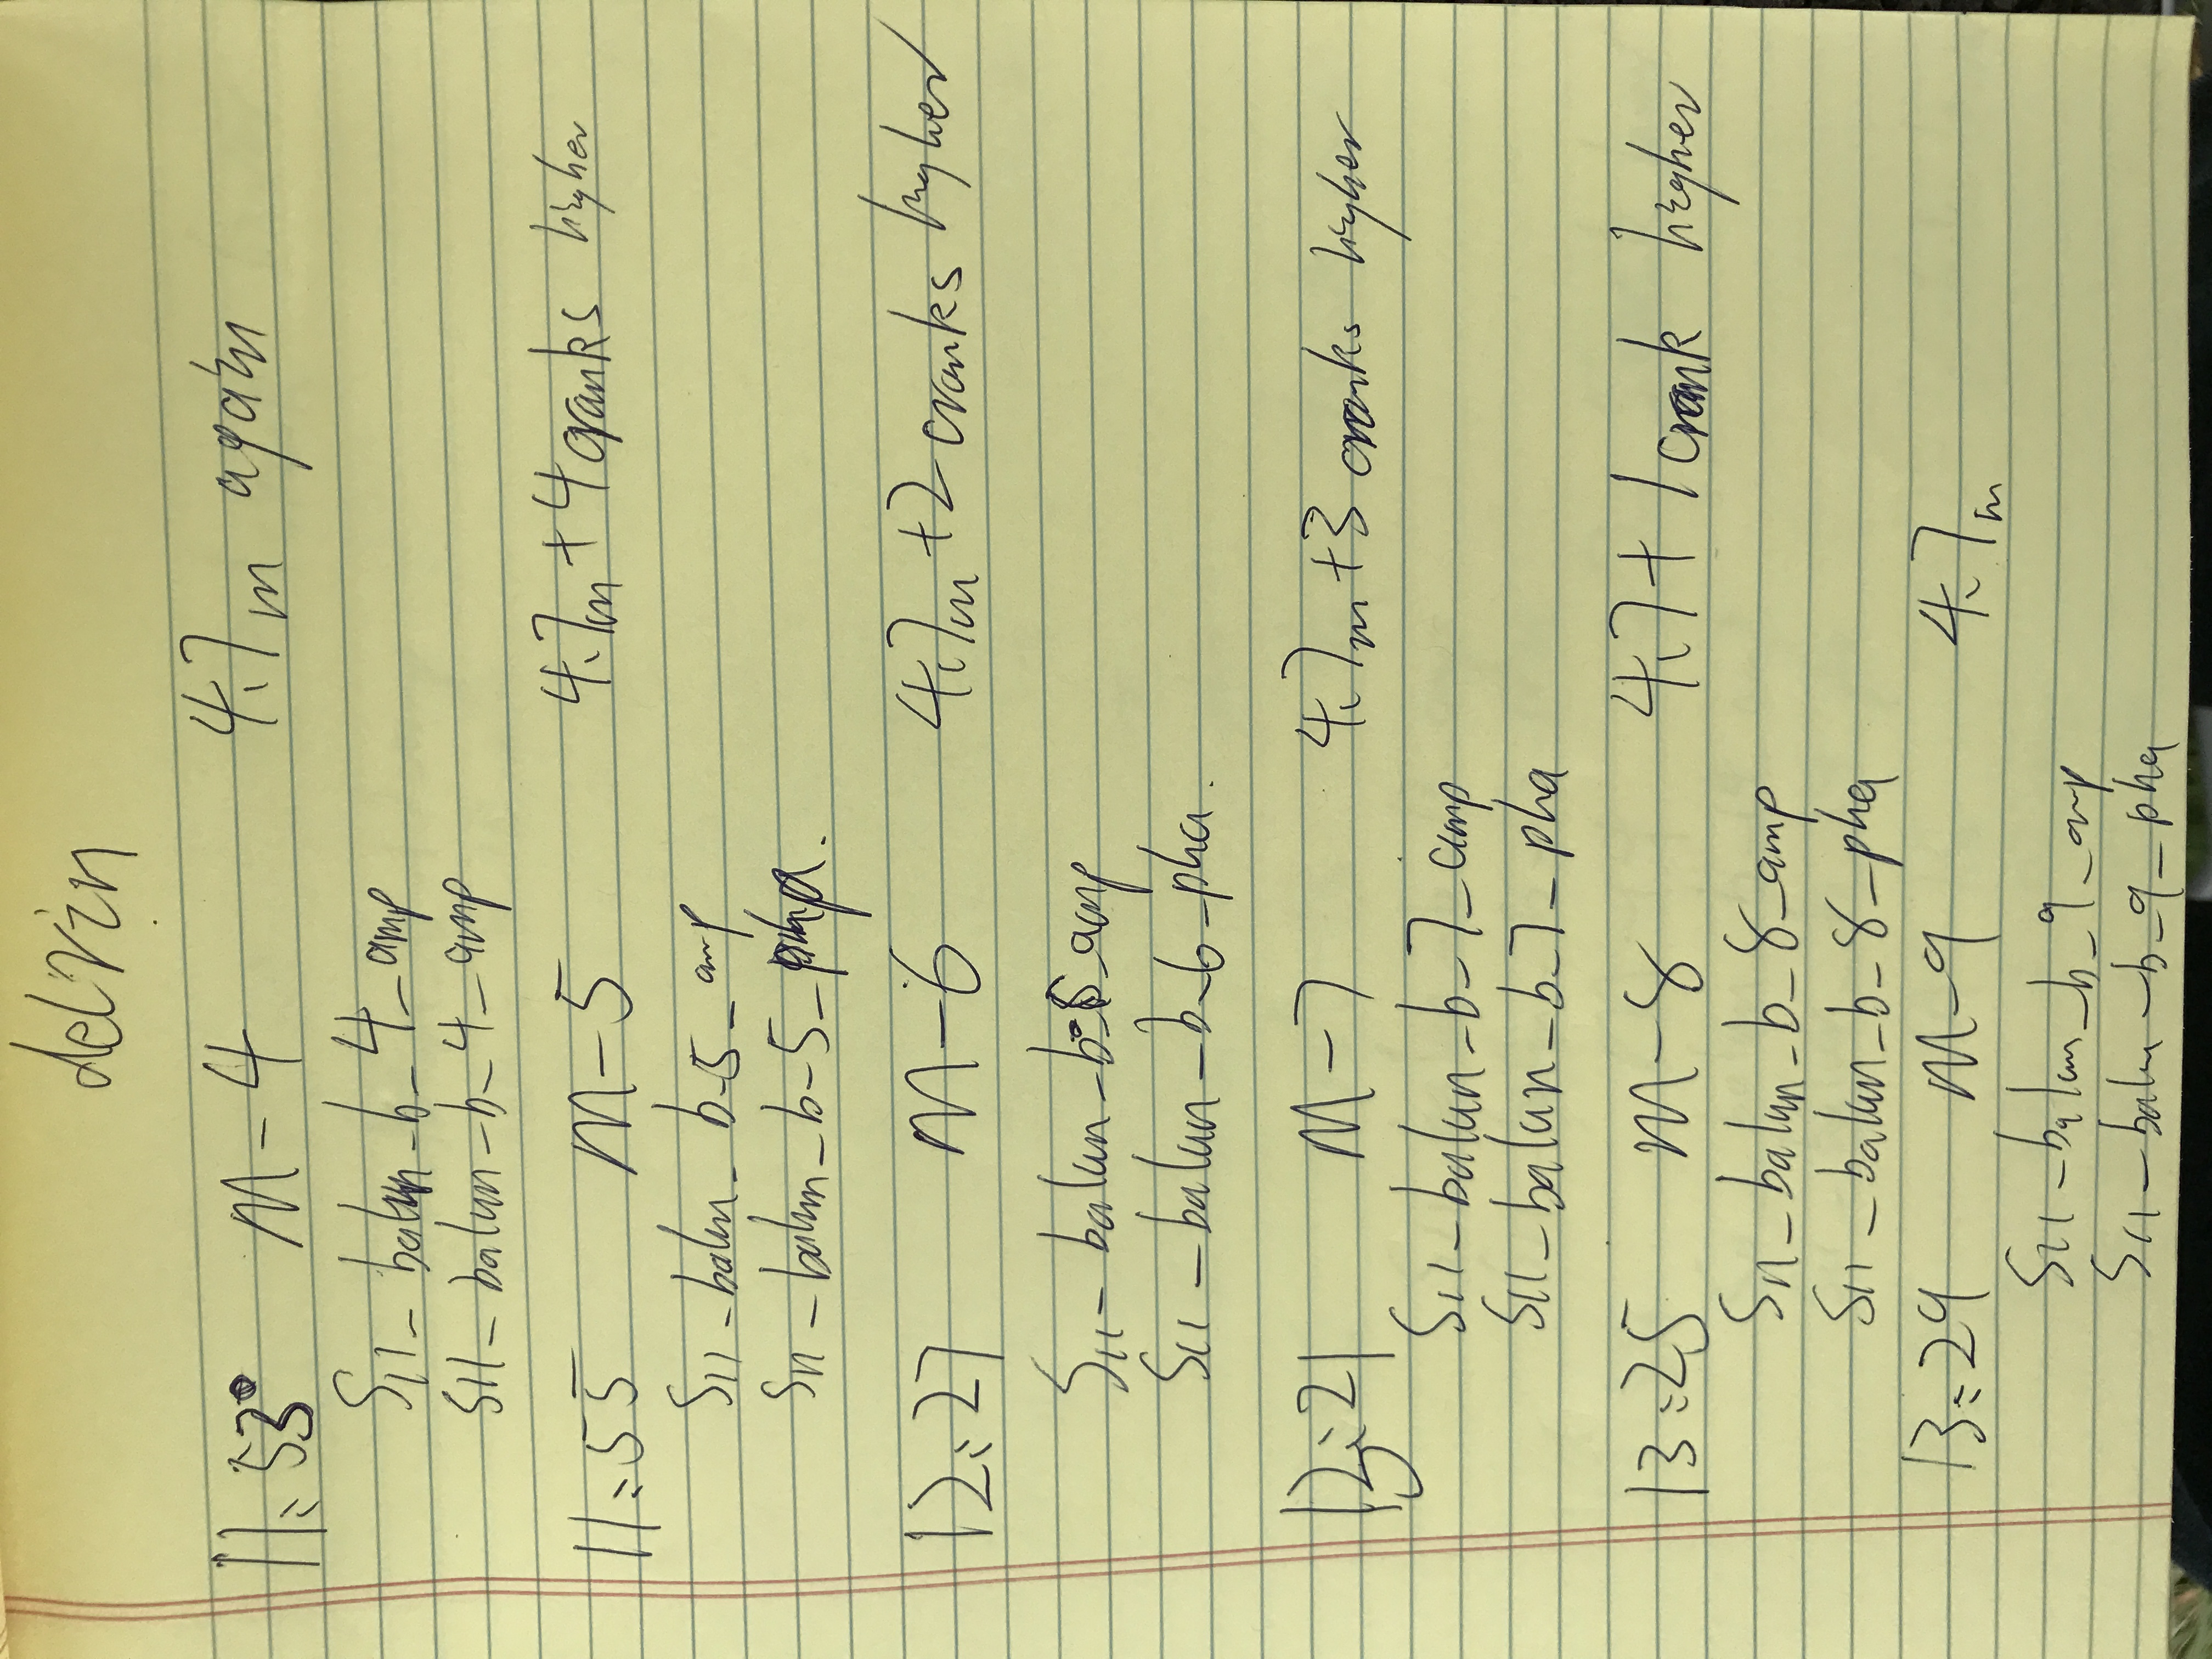 delvin
M-4 4.7m again
S11-balun-b-4-amp
S11-balun-b-4-amp
11:55 M-5 4.7m+4 cranks higher
S11-balun-b-5-amp
S11-balun-b-5-pha.
12:27 M-6 4.7m+2 cranks higher
S11-balun-b-6 amp
S11-balun-b-6-pha.
12:21 M-7 4.7m+3 cranks higher
S11-balun-b-7-amp
S11-balun-b-7-pha
13:25 M-8 4.7+1 crank higher
S11-balun-b-8-amp
S11-balun-b-8-pha
13:29 M-9 4.7m
S11-balun-b-9-amp
S11-balun-b-9-pha